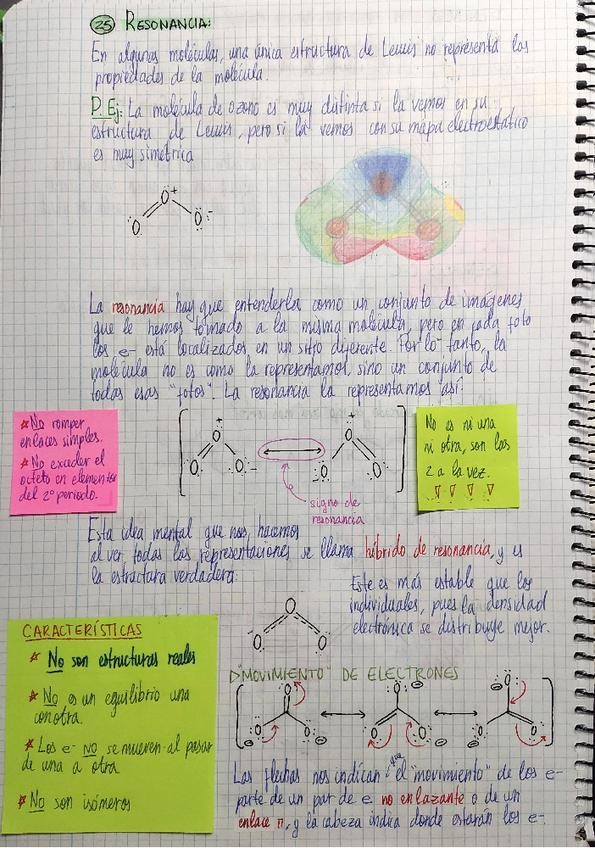 25 RESONANCIA:
En algunas moléculas, una única estructura de Lewis no representa las
propiedades de la molécula.
P. Ej: La molécula de ozono es muy distinta si la vemos en su
estructura de Lewis, pero si la vemos con su mapa electroestático
es muy simétrica
O + O O -
La resonancia hay que entenderla como un conjunto de imágenes
que le hemos tomado a la misma molécula, pero en cada foto
los e- está localizados en un sitio diferente. Por lo tanto, la
molécula no es como la representamos sino un conjunto de
todas esas "fotos". La resonancia la representamos así:
* No romper
enlaces simples.
* No exceder el
octeto en elementos
del 2º periodo.
signo de
resonancia
No es ni una
ni otra, son las
2 a la vez.
Esta idea mental que nos hacemos
al ver todas las representaciones se llama híbrido de resonancia, y es
la estructura verdadera:
Este es más estable que los
individuales, pues la densidad
electrónica se distribuye mejor.
CARACTERÍSTICAS
* No son estructuras reales
* No es un equilibrio una
con otra.
* Los e- NO se mueven al pasar
de una a otra
* No son isómeros
"MOVIMIENTO" DE ELECTRONES
Las flechas nos indican que el "movimiento" de los e-
parte de un par de e- no enlazante o de un
enlace π, y la cabeza indica donde estarán los e-.